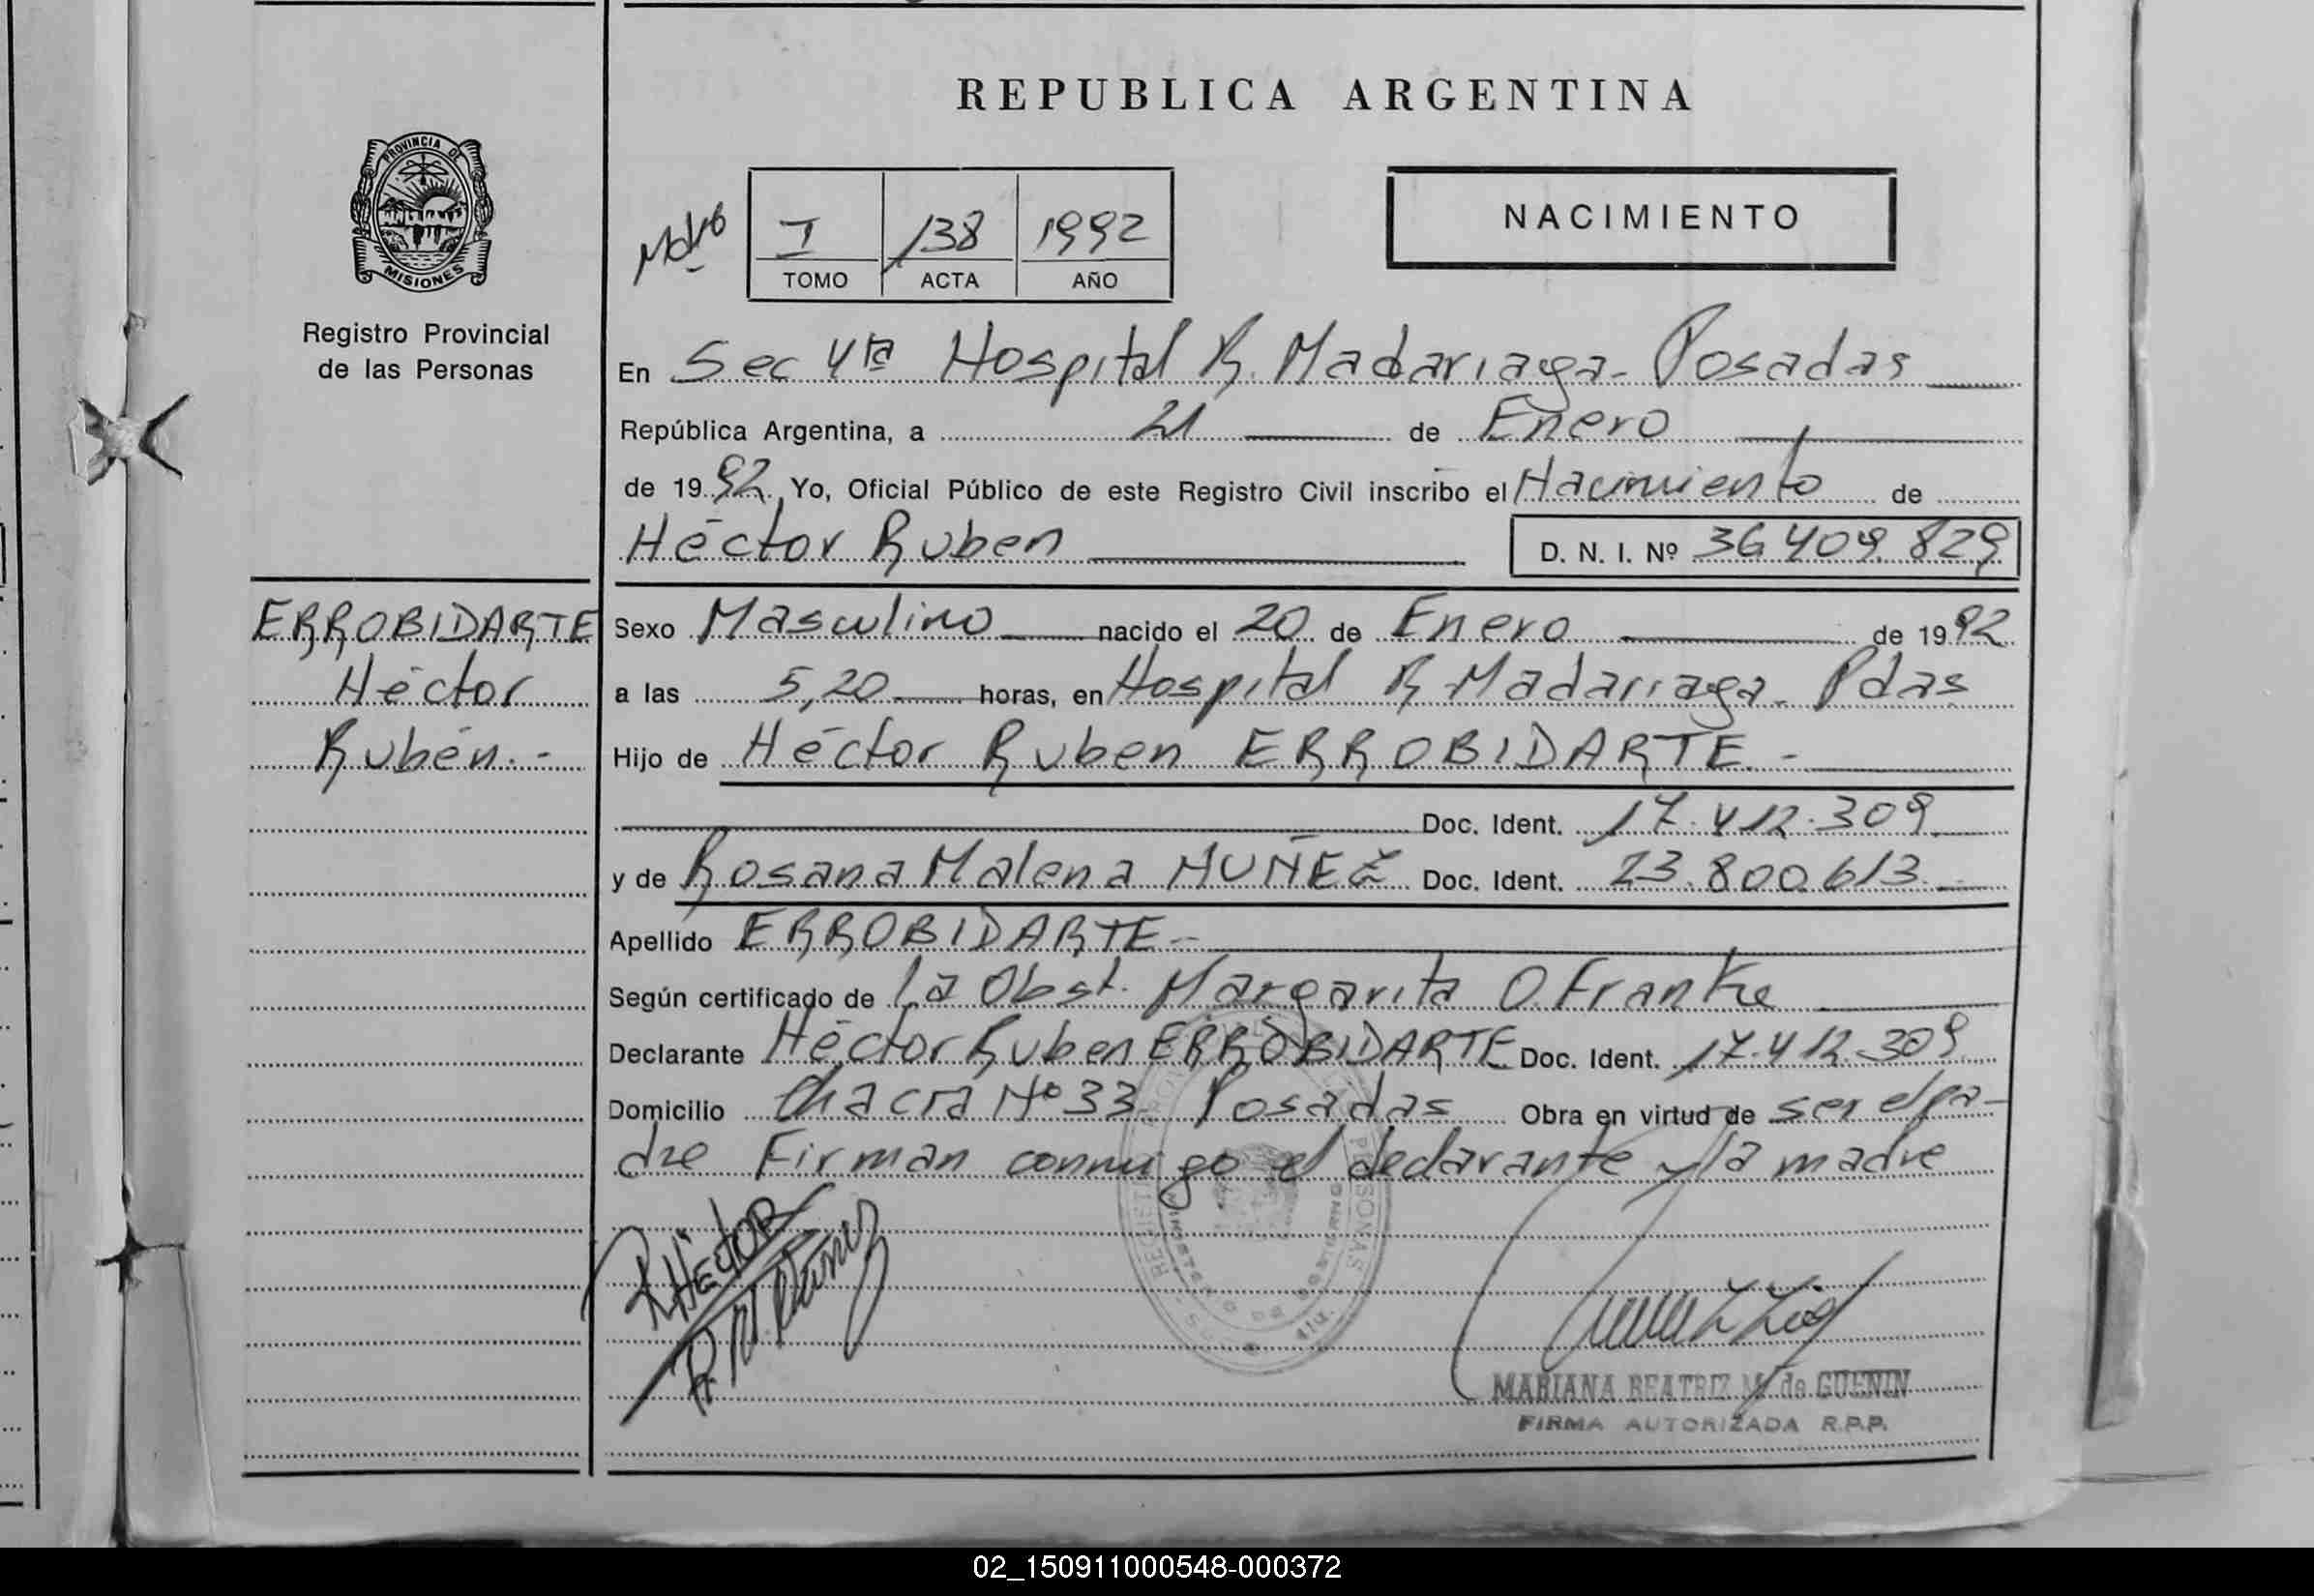 REPUBLICA ARGENTINA
PROVINCIA DE
MISIONES
Registro Provincial
de las Personas
I 138 1992
TOMO ACTA AÑO
NACIMIENTO
En Sec 4ta Hospital R. Madariaga - Posadas
República Argentina, a 21 de Enero
de 1992 Yo, Oficial Público de este Registro Civil inscribo el Nacimiento de
Héctor Ruben D. N. I. Nº 36 409 829
ERROBIDARTE
Héctor
Rubén.-
Sexo Masculino nacido el 20 de Enero de 1992
a las 5,20 horas, en Hospital R Madariaga - Pdas
Hijo de Héctor Ruben ERROBIDARTE.-
Doc. Ident. 17.412.309
y de Rosana Malena MUÑEZ Doc. Ident. 23.800.613
Apellido ERROBIDARTE-
Según certificado de La Obst. Margarita O. Franke
Declarante Héctor Ruben ERROBIDARTE Doc. Ident. 17.412.309
Domicilio Chacra Nº 33 - Posadas Obra en virtud de ser el pa-
dre Firman conmigo el declarante y la madre
R HECTOR
MARIANA BEATRIZ M. de GUENIN
FIRMA AUTORIZADA R.P.P.
02_150911000548-000372